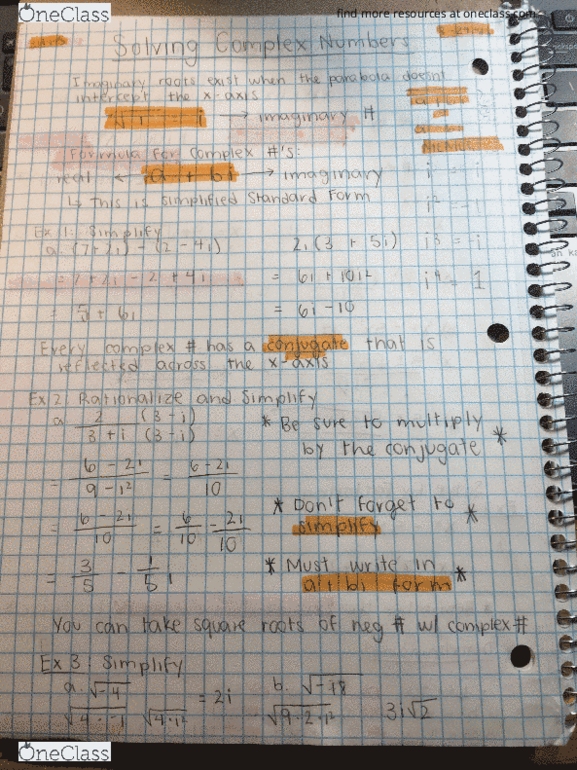 OneClass
find more resources at oneclass.com
Solving Complex Numbers
Imaginary roots exist when the parabola doesnt
intercept the x-axis
→ imaginary #
Formula for complex #'s:
real ← a + bi → imaginary
↳ This is simplified standard form
i = i
i² = -1
i³ = -i
i⁴ = 1
Ex 1: Simplify
a. (7+2i) - (2 - 4i)
= 7 + 2i - 2 + 4i
= 5 + 6i
2i(3 + 5i)
= 6i + 10i²
= 6i - 10
Every complex # has a conjugate that is
reflected across the x-axis
Ex 2: Rationalize and Simplify
a. 2/(3+i) (3-i)/(3-i)
= (6-2i)/(9-i²) = (6-2i)/10
= (6-2i)/10 = 6/10 - 2i/10
= 3/5 - 1/5 i
* Be sure to multiply
by the conjugate *
* Don't forget to
simplify *
* Must write in
a+bi form *
You can take square roots of neg # w/ complex #
Ex 3: Simplify
a. √-4
√4·-1 √4·i² = 2i
b. √-18
√9·2·i² 3i√2
OneClass